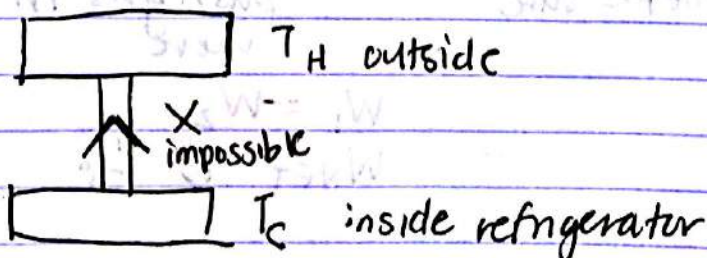 T_H outside
X
impossible
T_C inside refrigerator